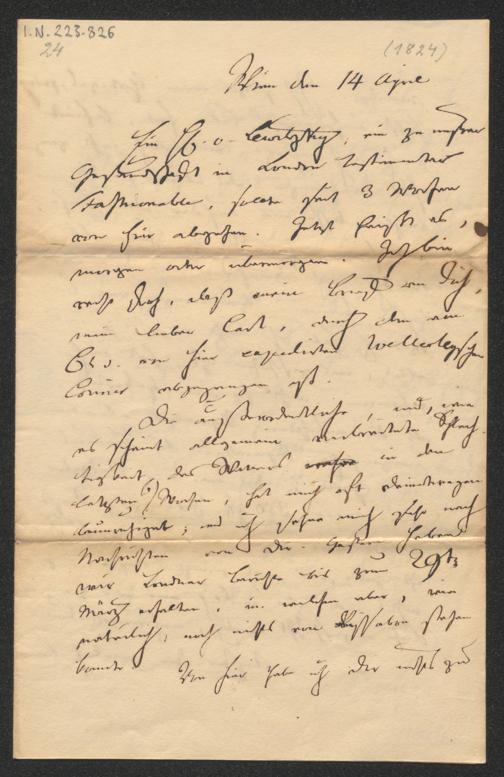 I.N. 223.826
24
(1824)
Wien den 14 April
Ein Gf. v. Lewitzky, ein zu unsrer
Gesandtschaft in London bestimmter
Fashionable, sollte seit 3 Wochen
von hier abgehen. Jetzt heißt es,
morgen oder übermorgen. Ich bin
recht froh, daß mein Brief an Dich,
mein lieber Carl, durch den am
von hier expedirten Wellesleyschen
Courier abgegangen ist.
Die außerordentliche, und, wie
es scheint allgemein verbreitete
des Wetters in den
letzten Wochen, hat mich oft
beunruhigt; und ich sehne mich sehr nach
Nachrichten von Dir. Gestern haben
wir Londner Berichte bis zum 29ts
März erhalten, in welchen aber, wie
natürlich, noch nichts von Lissabon stehen
konnte. Von hier habe ich Dir nichts zu